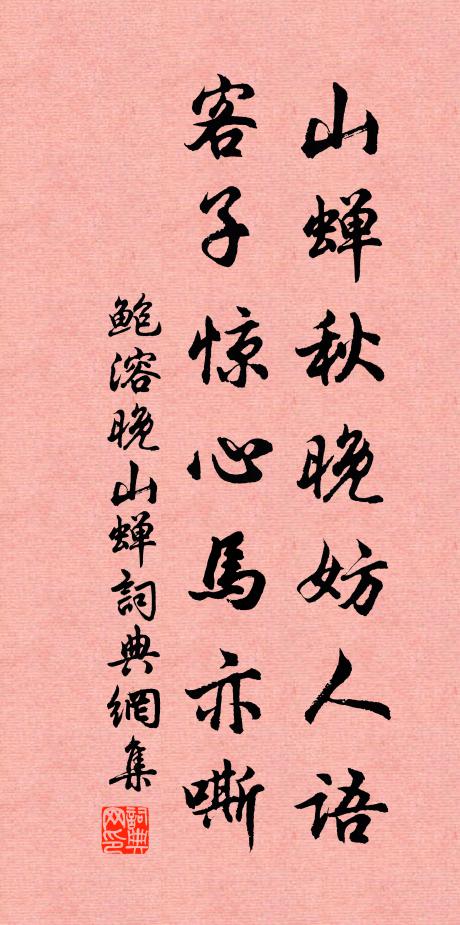 山蝉秋晚妨人语
客子惊心馬亦嘶
鲍溶晚山蝉詞典網集
詞典网印